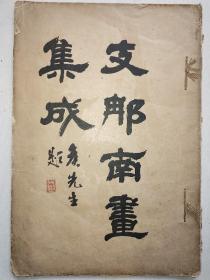 支那南畫
集成
長先生
題